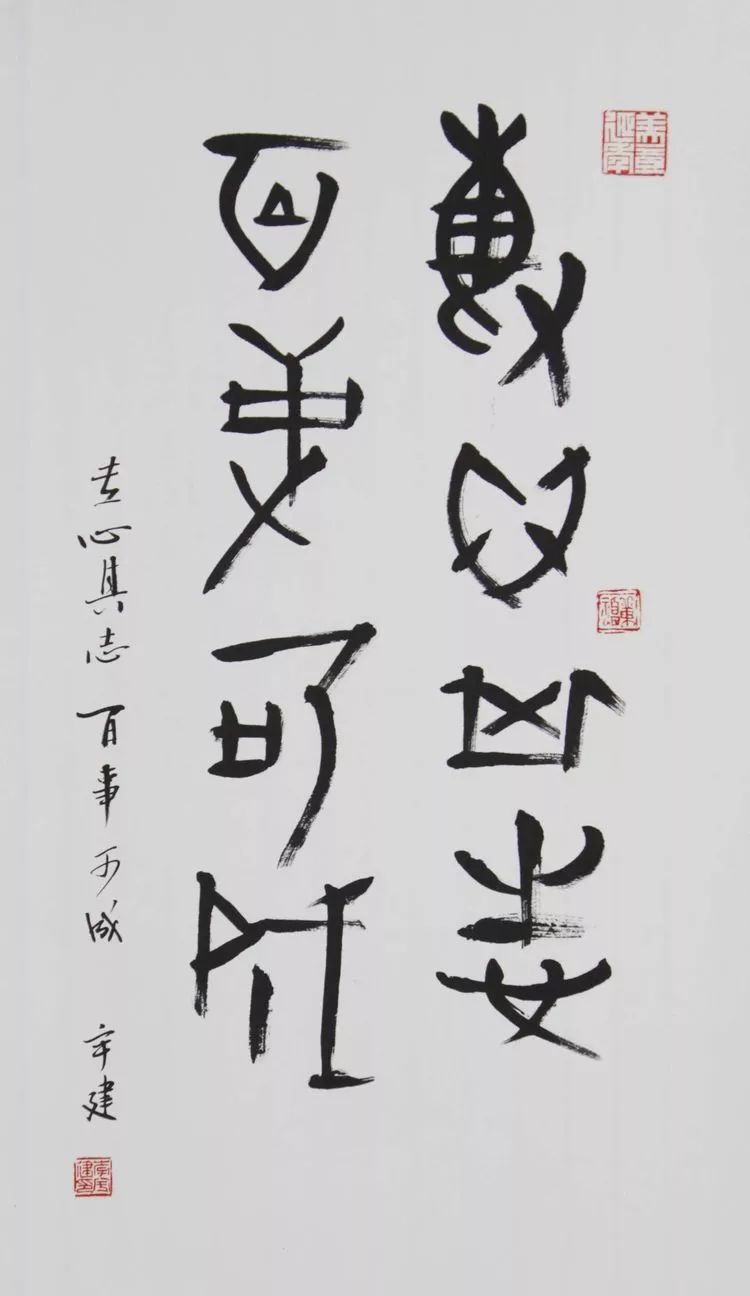 美意延年
專心其志
百事可成
专心其志 百事可成 建